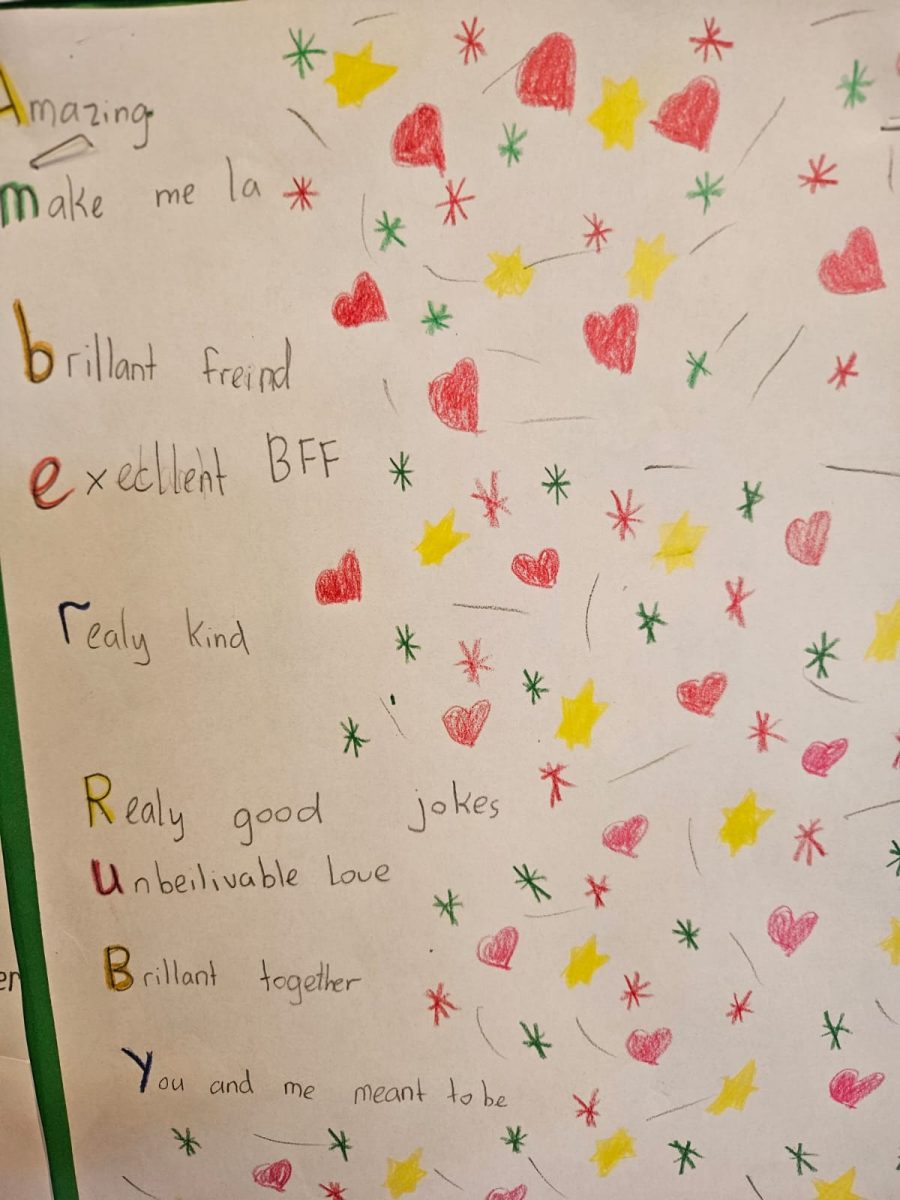 Amazing
make me la
brillant freind
execllent BFF
realy kind
Realy good jokes
unbeilivable Love
Brillant together
You and me meant to be
er